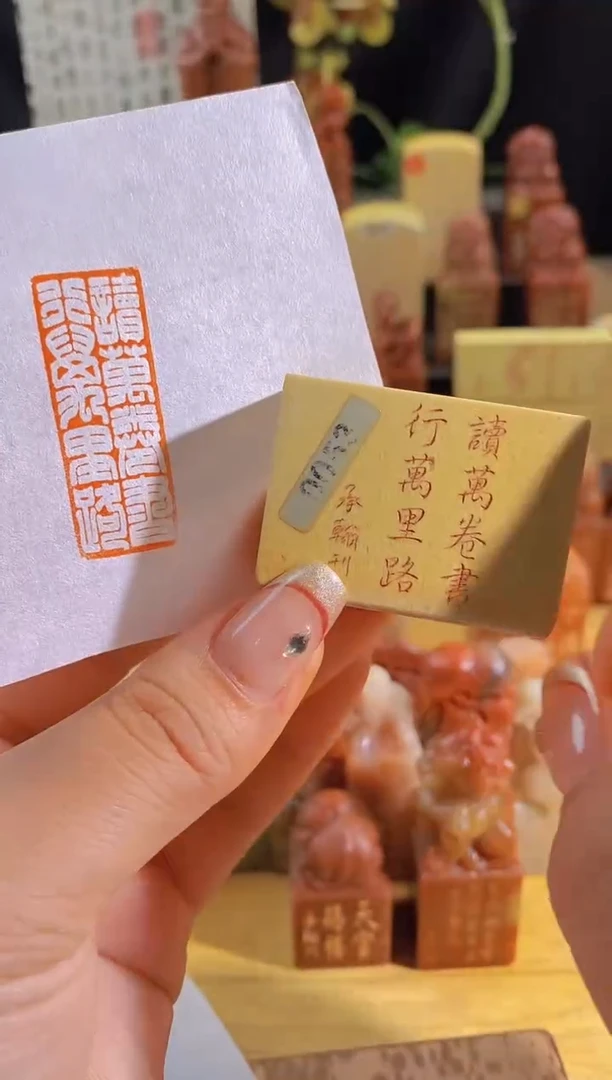 讀萬卷書
行萬里路
承翰刊
讀萬卷書
行萬里路
天官
賜福